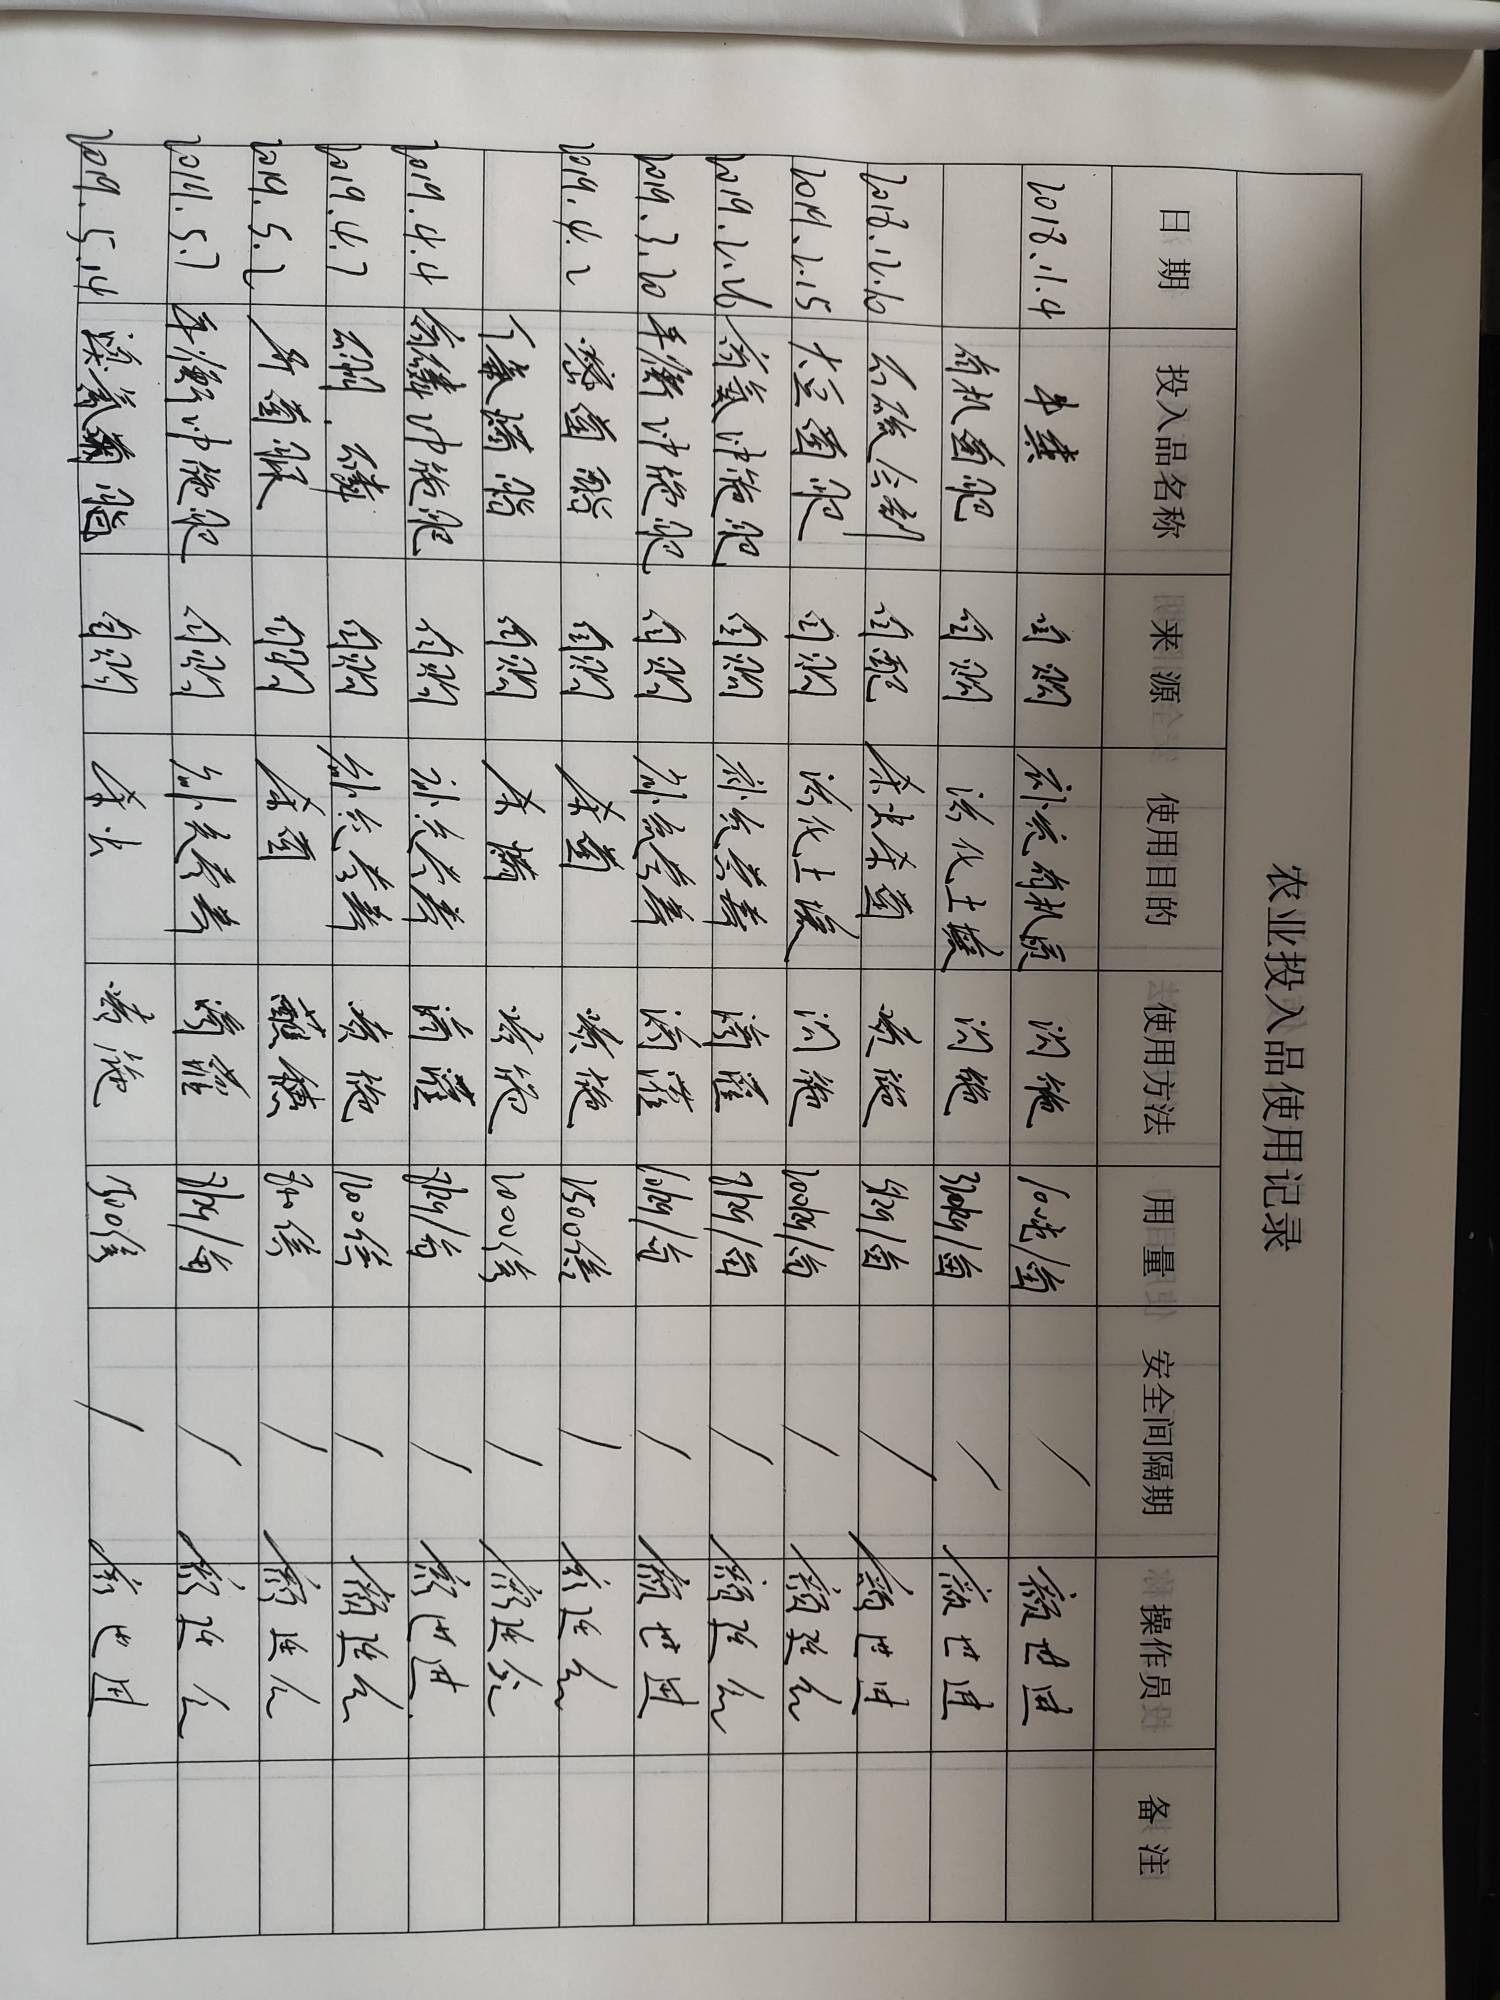 农业投入品使用记录
日期 投入品名称 来源 使用目的 使用方法 用量 安全间隔期 操作员 备注
2018.11.4 牛粪 自购 补充有机质 沟施 / 颜世进
有机菌肥 自购 活化土壤 沟施 320kg/亩 / 颜世进
2018.12.10 石硫合剂 自配 杀虫杀菌 喷施 5kg/亩 / 颜世进
2019.2.15 大豆菌肥 自购 活化土壤 沟施 200kg/亩 / 颜进
2019.2.26 高氮冲施肥 自购 补充营养 滴灌 / 颜进
2019.3.20 平衡冲施肥 自购 补充营养 滴灌 10kg/亩 / 颜世进
2019.4.2 自购 杀菌 喷施 1500倍 / 颜进
自购 杀螨 喷施 2000倍 / 颜进
2019.4.4 高磷冲施肥 自购 补充营养 滴灌 / 颜世进
2019.4.7 自购 补充营养 喷施 / 颜进
2019.5.2 自购 杀菌 蘸穗 / 颜进
2019.5.7 平衡冲施肥 自购 补充营养 滴灌 / 颜进
2019.5.14 自购 杀虫 喷施 1500倍 / 颜世进